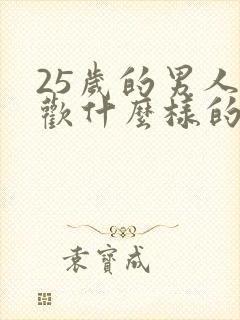 25歲的男人
歡什麼樣的
袁寶成